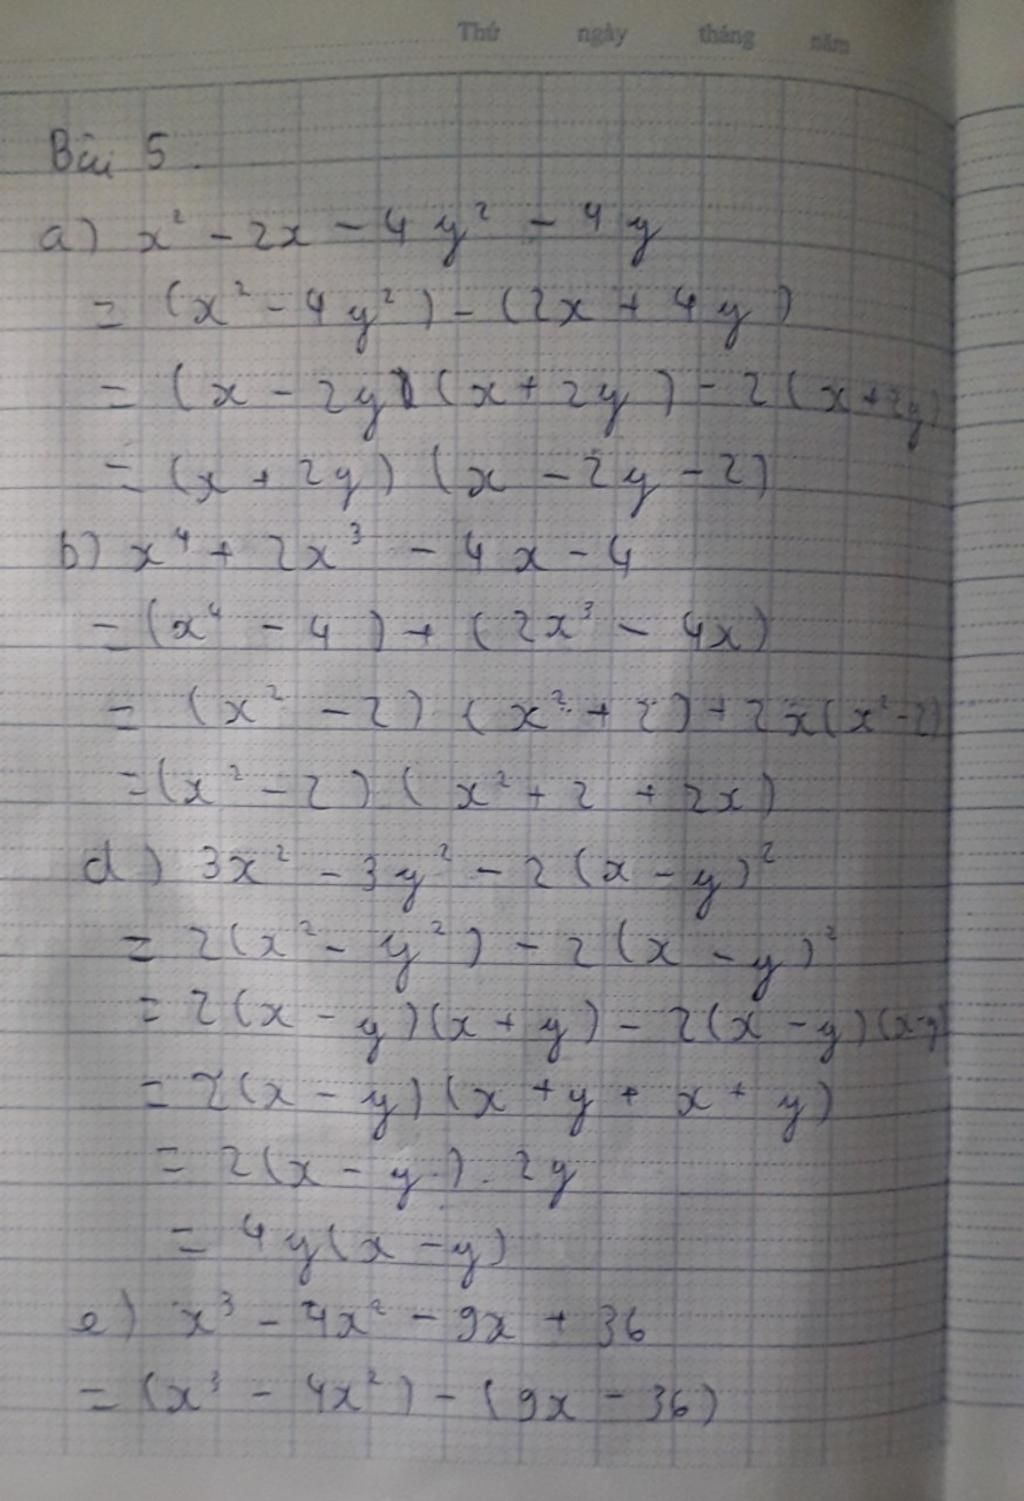 Thứ ngày tháng năm
Bài 5.
a) x² - 2x - 4y² - 4y
= (x² - 4y²) - (2x + 4y)
= (x - 2y)(x + 2y) - 2(x + 2y)
= (x + 2y)(x - 2y - 2)
b) x⁴ + 2x³ - 4x - 4
= (x⁴ - 4) + (2x³ - 4x)
= (x² - 2)(x² + 2) + 2x(x² - 2)
= (x² - 2)(x² + 2 + 2x)
d) 3x² - 3y² - 2(x - y)²
= 2(x² - y²) - 2(x - y)²
= 2(x - y)(x + y) - 2(x - y)(x - y)
= 2(x - y)(x + y + x + y)
= 2(x - y).2y
= 4y(x - y)
e) x³ - 4x² - 9x + 36
= (x³ - 4x²) - (9x - 36)